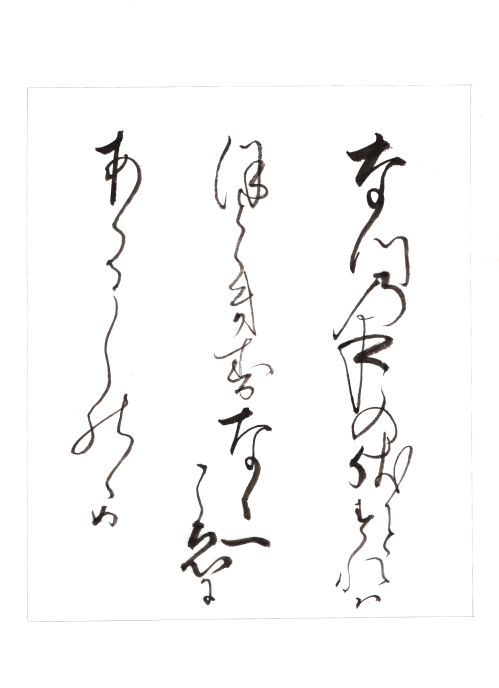 なつの夜の伏すかとすれは
ほとゝきすなく一こゑに
あくるしのゝめ